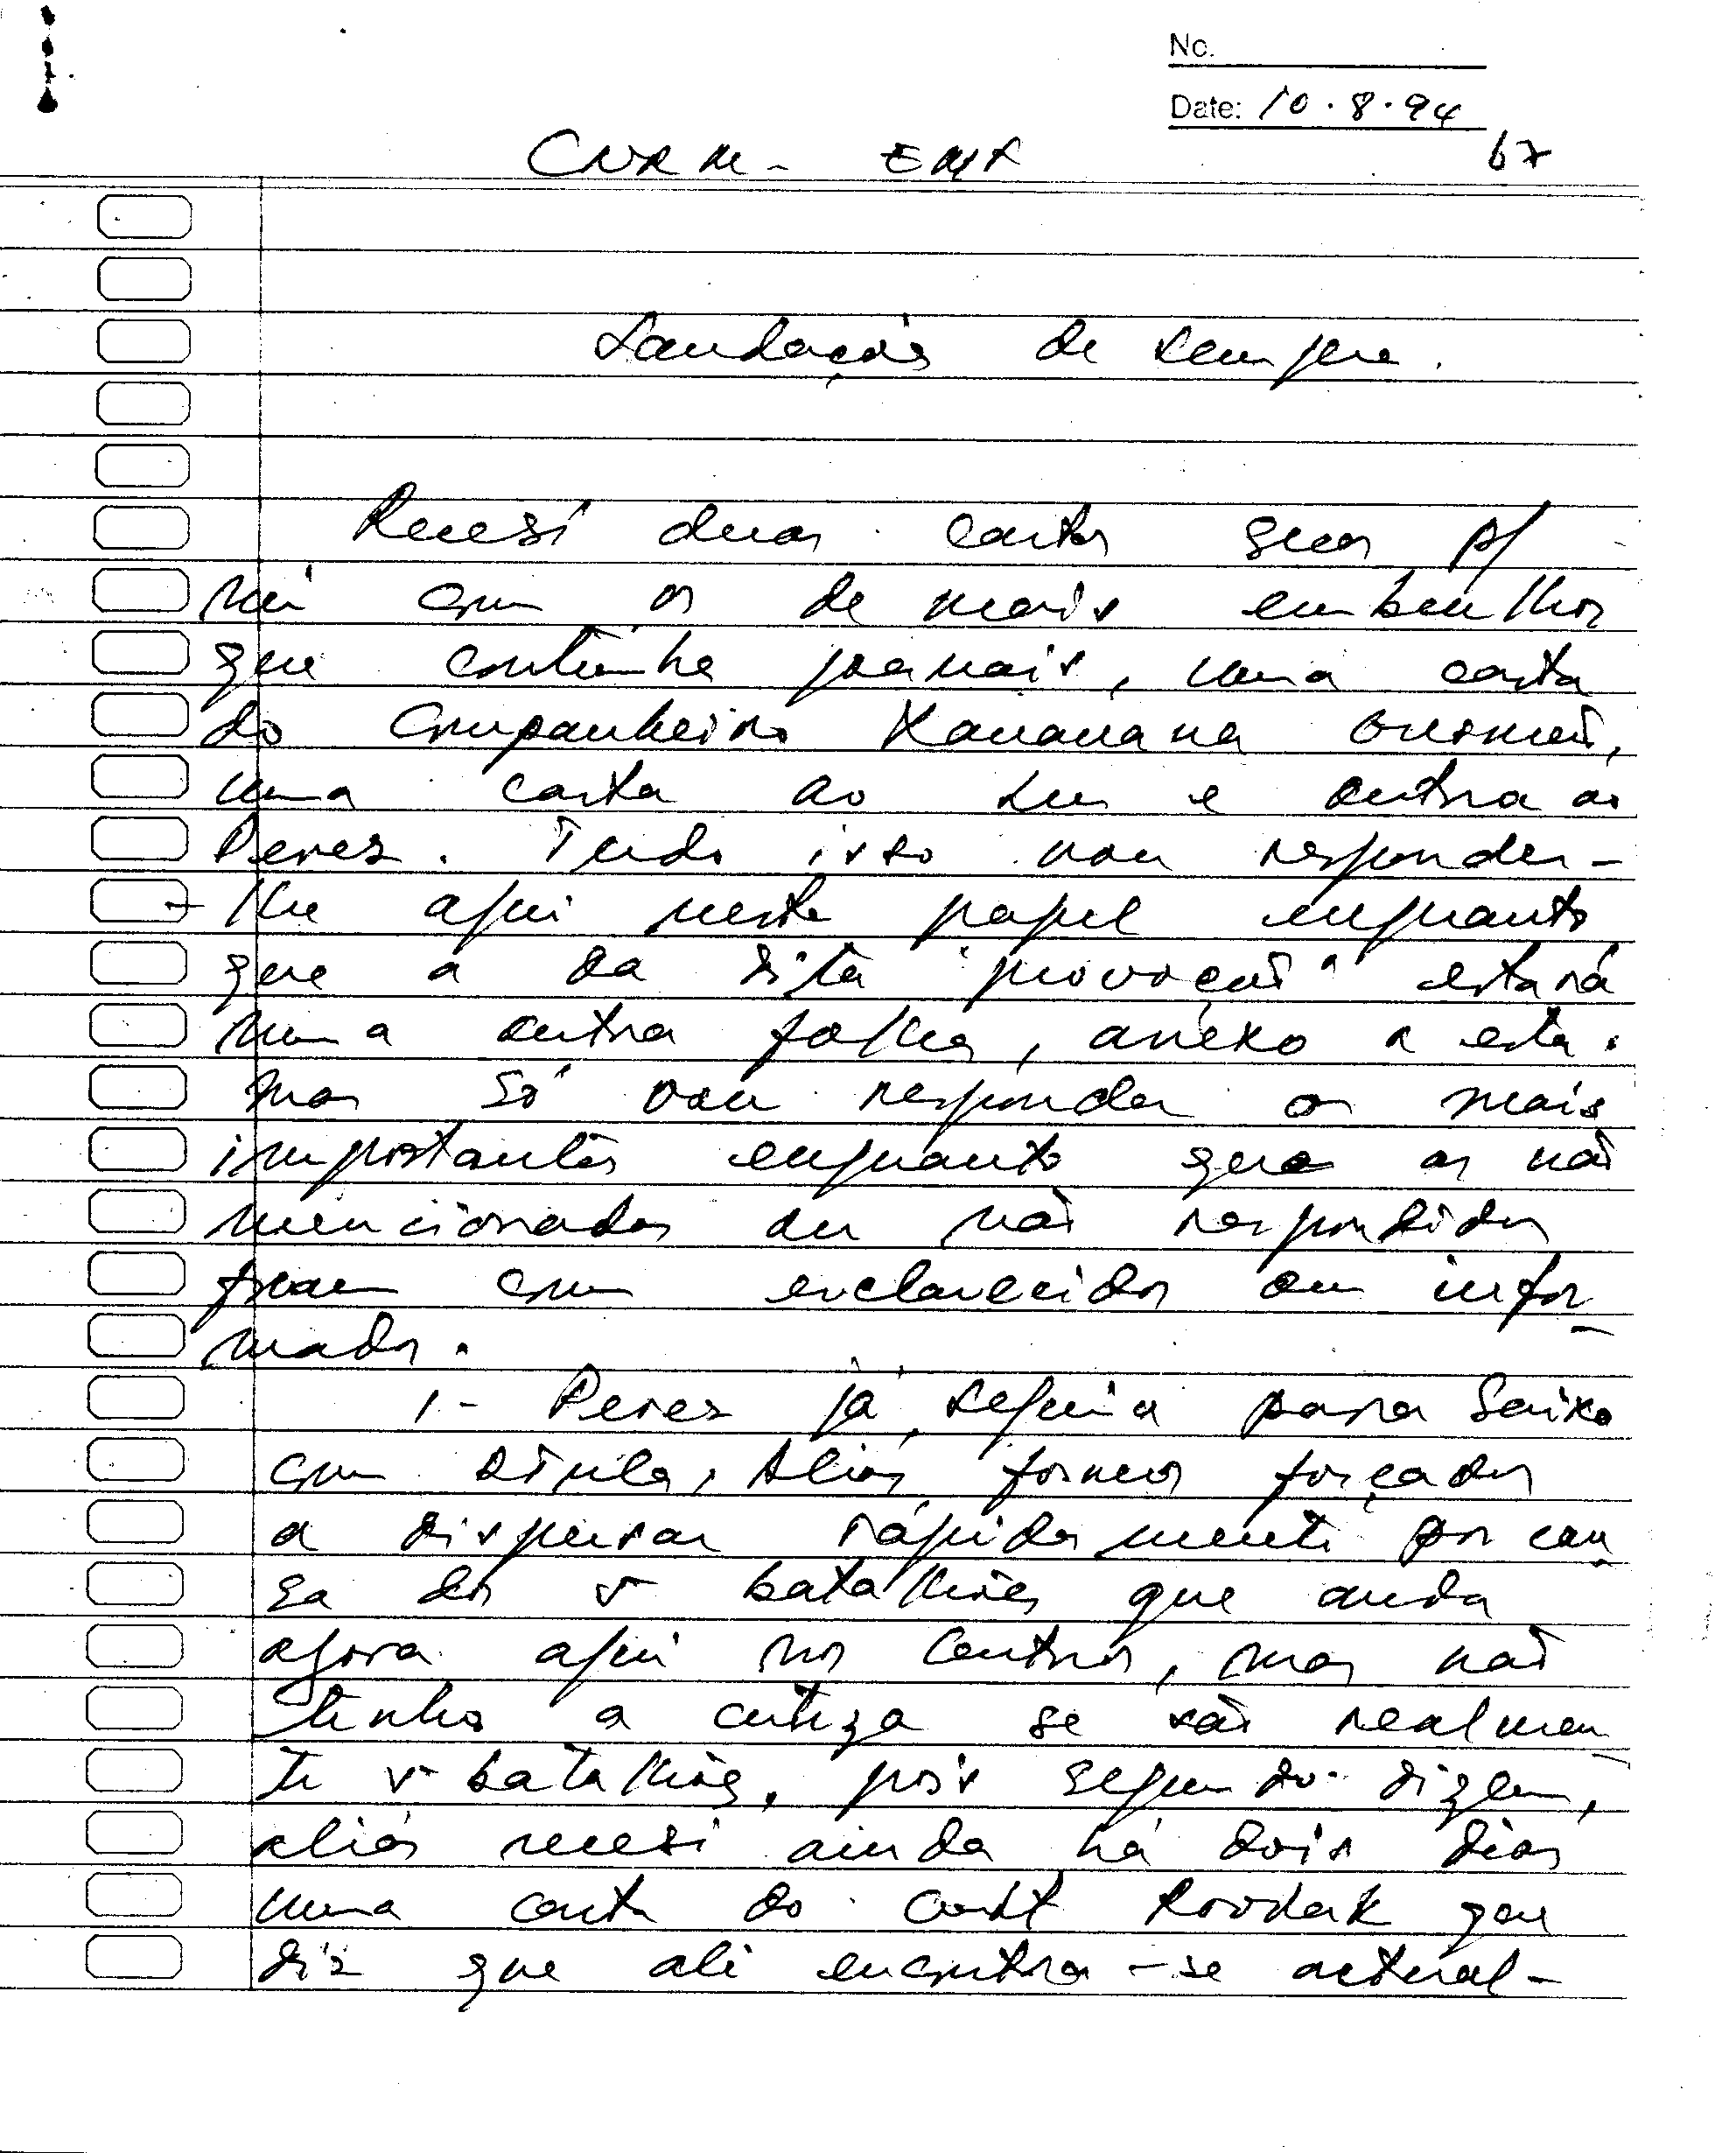 No.
Date: 10.8.94
67
CNRM -
Saudações de sempre.
Recebi duas cartas suas p/
mi com os demais embrulhos
que continha jornais, uma carta
do Companheiro Xananana Gusmão,
uma carta ao Lu e outra ao
Perez. Tudo isso vou responder-
-lhe aqui neste papel enquanto
que a da dita "provocação" estará
numa outra folha, anexo a esta.
mas só vou responder os mais
importantes enquanto que os não
mencionados ou não respondidos
ficam com esclarecidos ou infor-
mados.
1 - Perez já seguia para Baixo
com Aliás, fomos forçados
a dispersar rápidamente por cau-
sa dos 5 batalhões que anda
agora aqui no Centro, mas não
tinho a certeza se são realmen-
te 5 batalhões, pois segundo dizem,
aliás recebi ainda há dois dias
uma carta do Cmdt que
diz que ali encontra-se actual-